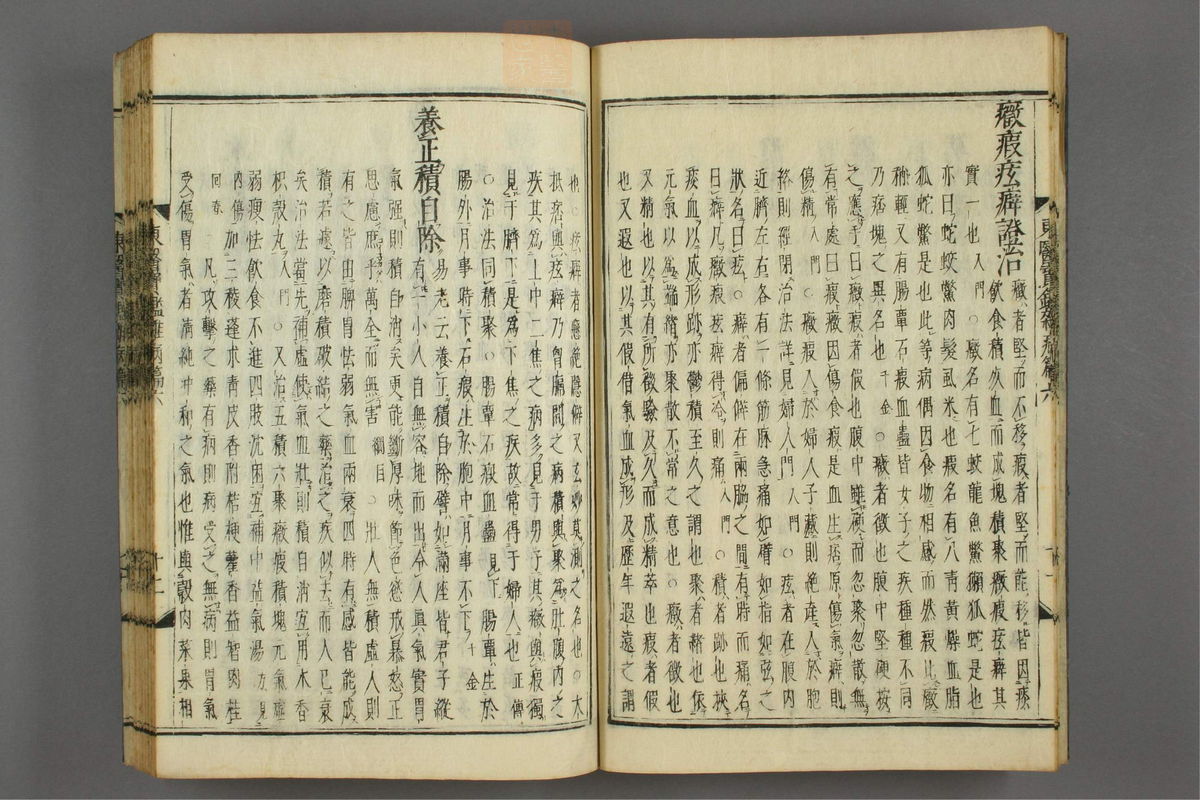 癥瘕痃癖證治 癥者堅而不移瘕者堅而能移皆因痰
飲食積灰血而成塊積聚癥瘕痃癖其
實一也 入門 ○癥名有七蛟龍魚鱉髮狐蛇是也
亦曰蛇蛟鱉肉髮虱米也瘕名有八靑黃燥血脂
狐蛇鱉是也此等病偶因食物相感而然瘕比癥
稍輕又有腸蕈石瘕血蠱皆女子之疾種種不同
乃痞塊之異名也 千金 ○癥者徵也腹中堅硬按
之應手曰瘕者假也腹中雖硬而忽聚忽散無
有常處曰瘕癥因傷食瘕是血生痞原傷氣癖則
傷精 入門 ○癥瘕入於婦人子藏則絶産入於胞
絡則經閉治法詳見婦人門 入門 ○痃者在腹內
近臍左右各有一條筋脉急痛如臂如指如弦之
狀名曰痃○癖者偏僻在兩脇之間有時而痛名
曰癖凡痃癖得冷則痛 入門 ○積者跡也挾
痰血以成形跡亦鬱積至久之謂也聚者緖也依
元氣以爲端緖亦聚散不常之意也○癥者徵也
又精也以其有所徵驗及久而成精萃也瘕者假
也又遐也以其假借氣血成形及歷年遐遠之謂
也○痃癖者懸絶隱僻又玄妙莫測之名也○大
抵痞與痃癖乃胷膈間之病積與聚爲肚腹內之
疾其爲上中二焦之病多見于男子其癥與瘕獨
見于臍下是爲下焦之疾故常得于婦人也 正傳
○治法同積聚○腸蕈石瘕血蠱 見下 腸蕈生於
腸外月事時下石瘕生於胞中月事不下 千金
養正積自除 易老云養正積自除譬如滿座皆君子縱
有一小人自無容地而出令人眞氣實胃
氣强則積自消矣更能斷厚味節色慾戒暴怒正
思慮庶乎萬全而無害 綱目 ○壯人無積虛人則
有之皆由脾胃怯弱氣血兩衰四時有感皆能成
積若遽以磨積破結之藥治之疾似去而人已衰
矣治法當先補虛使氣血壯則積自消宜用木香
枳殼丸 入門 ○又治五積六聚癥瘕積塊元氣虛
弱瘦怯飮食不進四肢沈困宜補中益氣湯 方見
內傷 加三稜蓬朮靑皮香附桔梗藿香益智肉桂
回春 凡攻擊之藥有病則病受之無病則胃氣
受傷胃氣者淸純冲和之氣也惟與穀肉菜果相
東醫寶鑑雜病篇六
十二